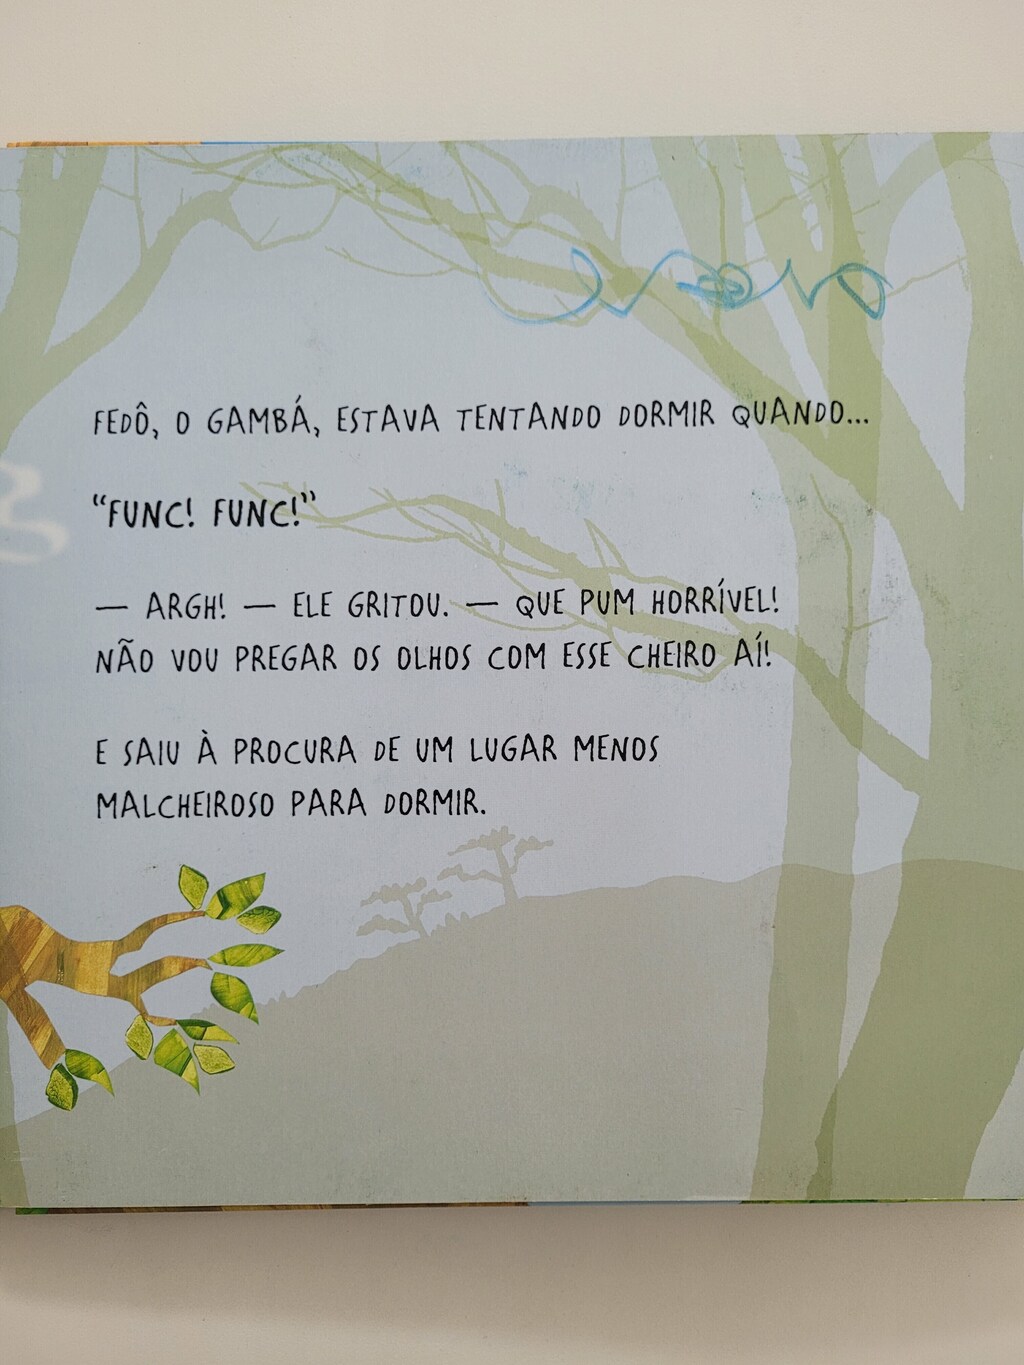 FEDÔ, O GAMBÁ, ESTAVA TENTANDO DORMIR QUANDO...
“FUNC! FUNC!”
— ARGH! — ELE GRITOU. — QUE PUM HORRÍVEL!
NÃO VOU PREGAR OS OLHOS COM ESSE CHEIRO AÍ!
E SAIU À PROCURA DE UM LUGAR MENOS
MALCHEIROSO PARA DORMIR.